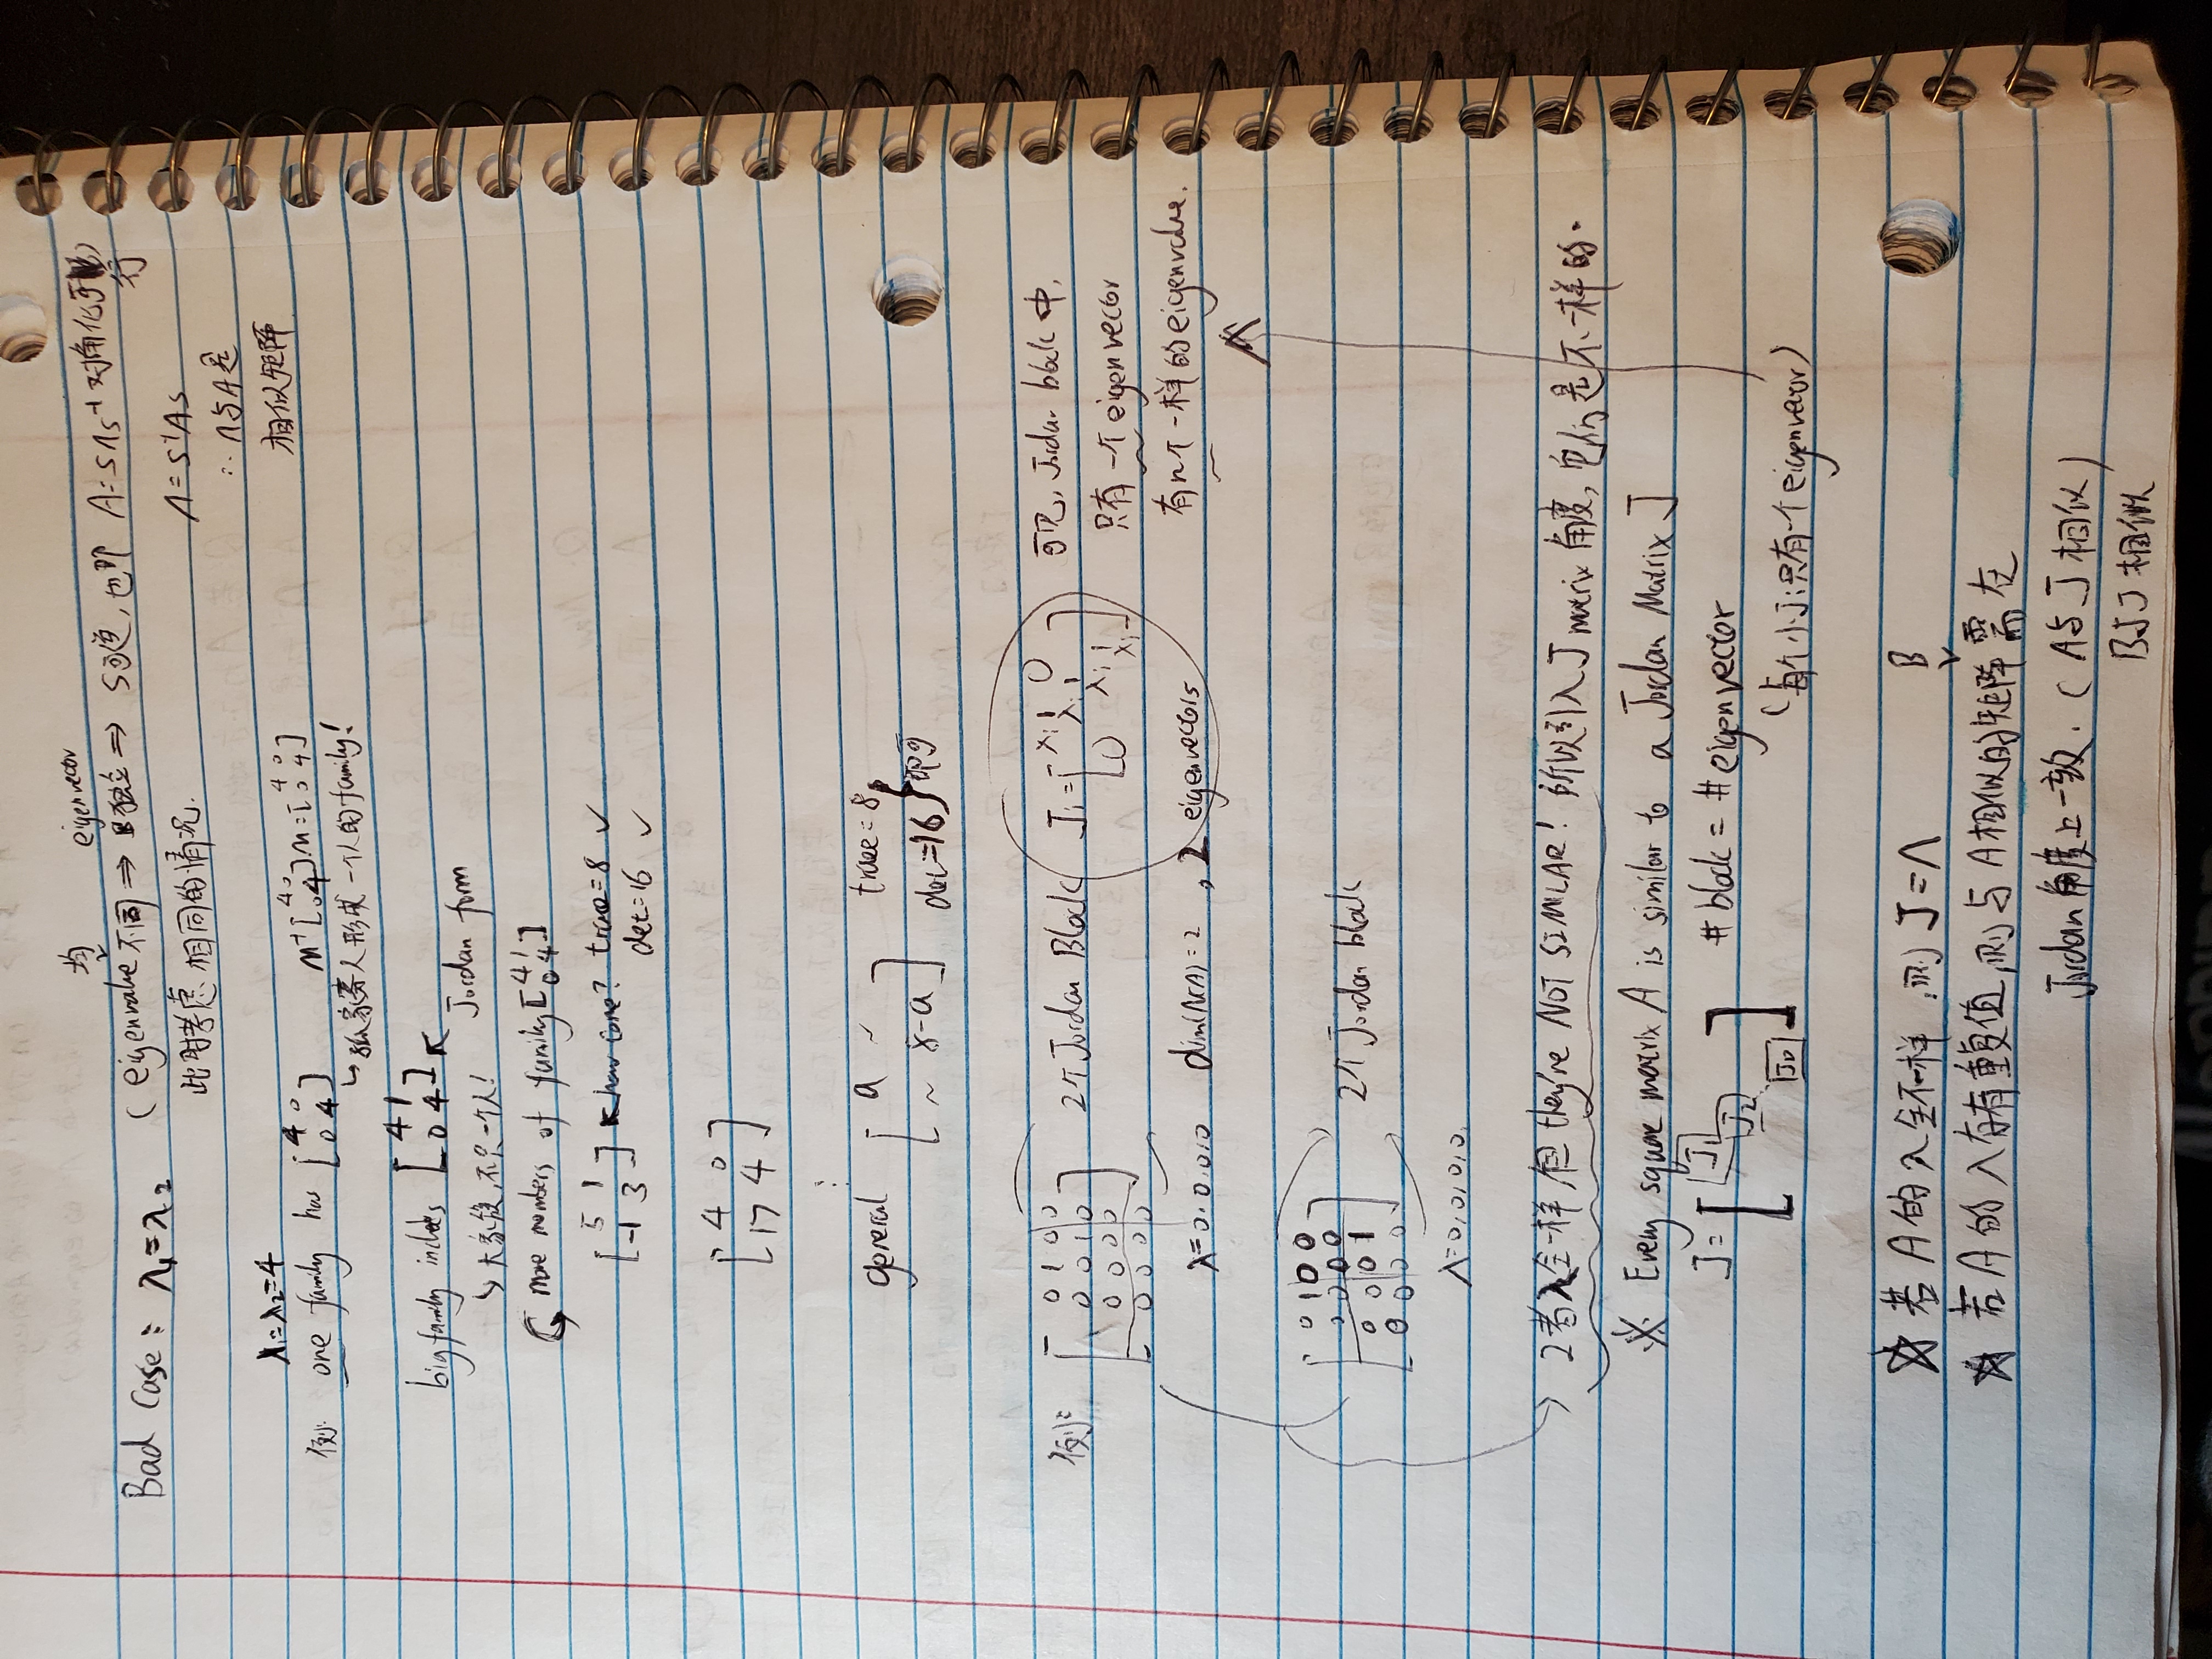 均 eigenvector
Bad Case: λ₁=λ₂ (eigenvalue 不同 ⇒ 独立 ⇒ S可逆, 也即 A=SΛS⁻¹ 对角化可行)
此时考虑相同的情况. Λ=S⁻¹AS
∴ Λ与A是
相似矩阵
λ₁=λ₂=4
例: one family has [4 0; 0 4] M⁻¹[4 0; 0 4]M=[4 0; 0 4]
↳ 孤家寡人形成一个人的family!
big family includes [4 1; 0 4] ↖
Jordan form
↘ 大家族,不只一个人!
more members of family [4 1; 0 4]
[5 1; -1 3] ↖ how come? trace=8 ✓
det=16 ✓
[4 0; 17 4]
⋮
general [a ~; ~ 8-a] trace=8
det=16 } 即可
例: [0 1 0 0; 0 0 1 0; 0 0 0 0; 0 0 0 0] 2个Jordan Block Jᵢ=[λᵢ 1 0; λᵢ 1; λᵢ 1; 0 λᵢ] 可见, Jordan block 中,
只有一个eigenvector
有n个一样的eigenvalue.
λ=0,0,0,0 dim(N(A))=2 , 2 eigenvectors
[0 1 0 0; 0 0 0 0; 0 0 0 1; 0 0 0 0] 2个Jordan block
λ=0,0,0,0.
2者λ全一样 但 they're NOT SIMILAR! 所以引入J matrix 角度, 它们是不一样的.
※ Every square matrix A is similar to a Jordan Matrix J
J=[J₁ J₂ ⋱ J_D] # block = # eigenvector
(每个小Jᵢ只有一个eigenvector)
☆ 若A的λ全不一样, 则 J=Λ B
☆ 若A的λ存有重复值, 则与A相似的矩阵需在
Jordan角度上一致. (A与J相似)
B与J相似